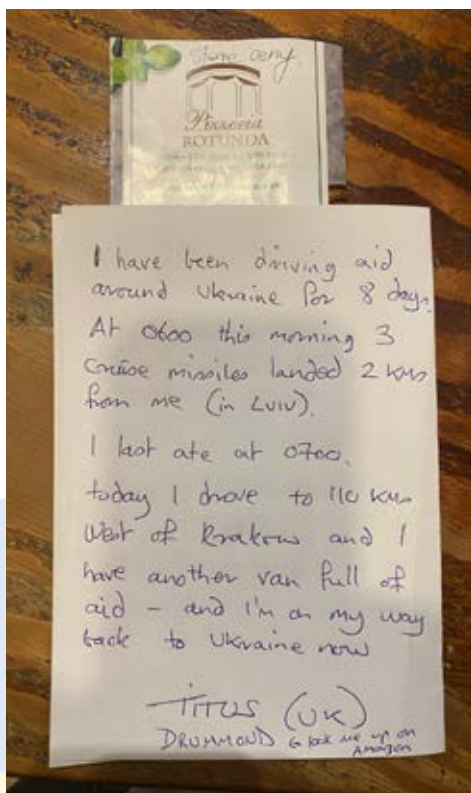 Stare ceny.
Pizzeria
ROTUNDA
I have been driving aid
around Ukraine for 8 days.
At 0600 this morning 3
Cruise missiles landed 2 kms
from me (in Lviv).
I last ate at 0700.
today I drove to 110 kms
West of Krakow and I
have another van full of
aid - and I'm on my way
back to Ukraine now
TITUS (UK)
DRUMMOND
look me up on
Amazon